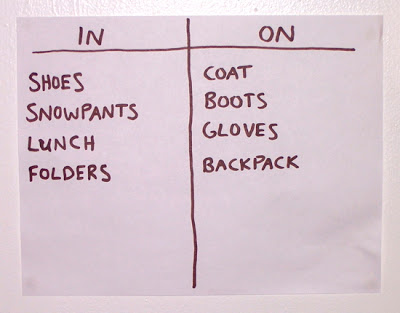 IN
SHOES
SNOWPANTS
LUNCH
FOLDERS
ON
COAT
BOOTS
GLOVES
BACKPACK